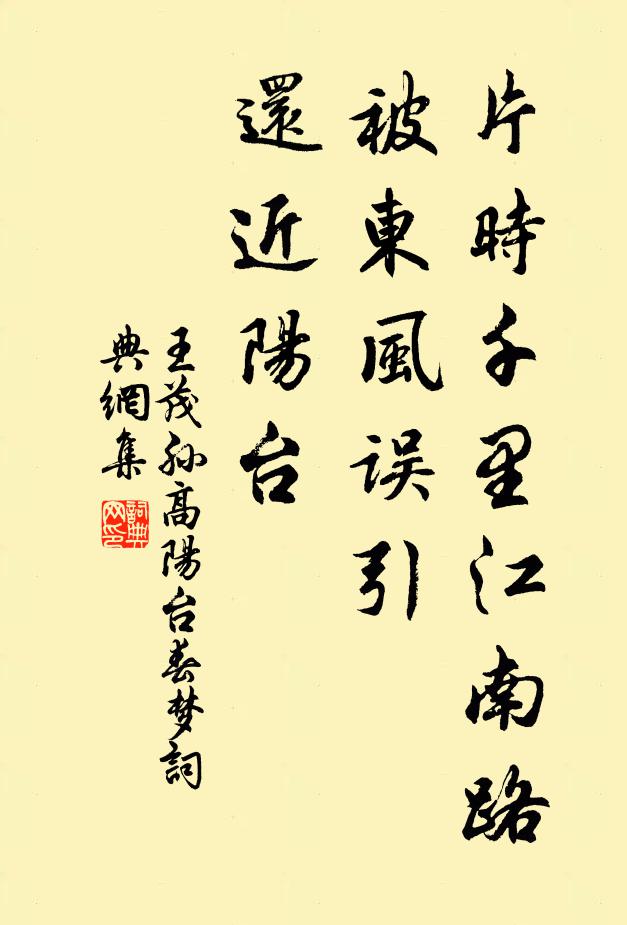 片時千里江南路
被東風误引
還近陽台
王茂孙高陽台春梦詞
典網集
詞典網印